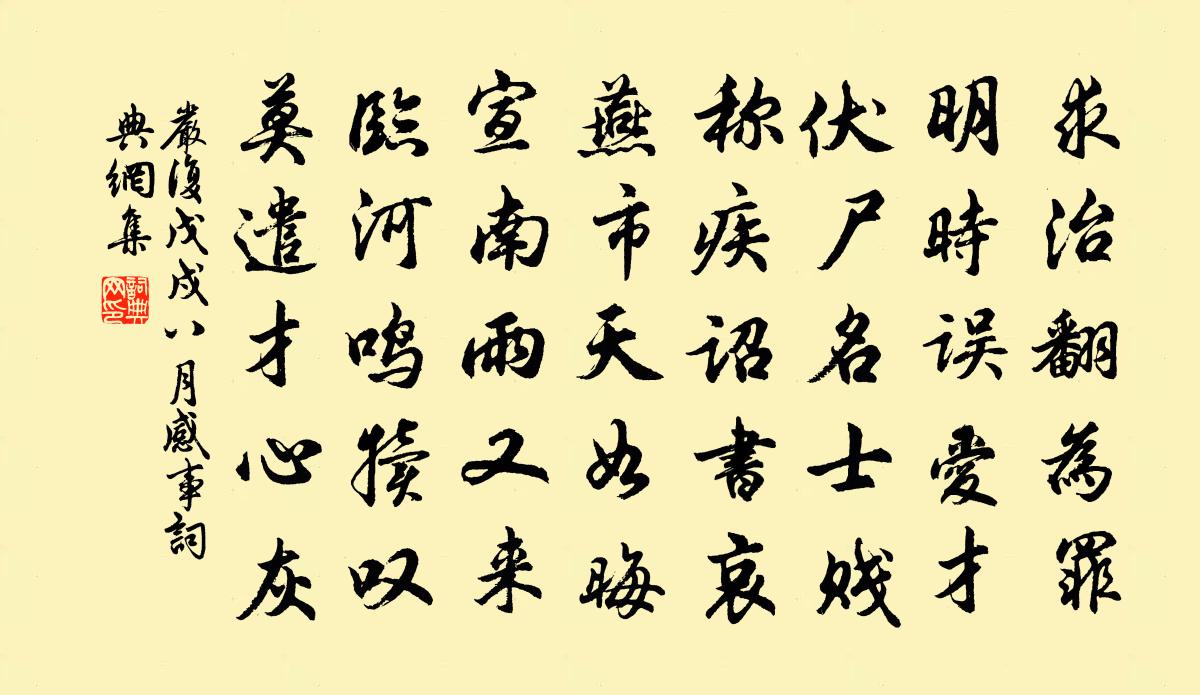 求治翻為罪
明時误愛才
伏尸名士贱
称疾诏書哀
燕市天如晦
宣南雨又来
臨河鸣犊叹
莫遣才心灰
嚴復戊戌八月感事詞
典網集
詞典網印